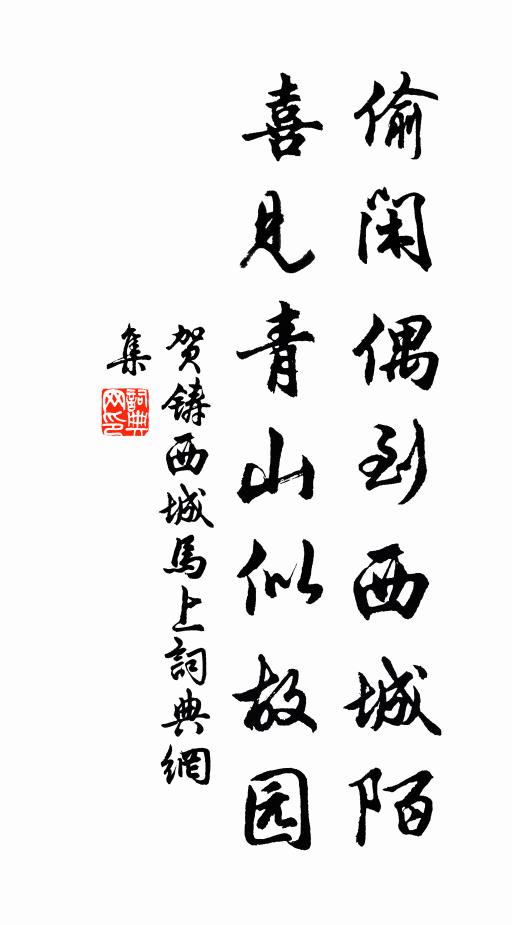 偷闲偶到西城陌
喜见青山似故园
贺铸西城馬上詞典網
集
詞典
网印